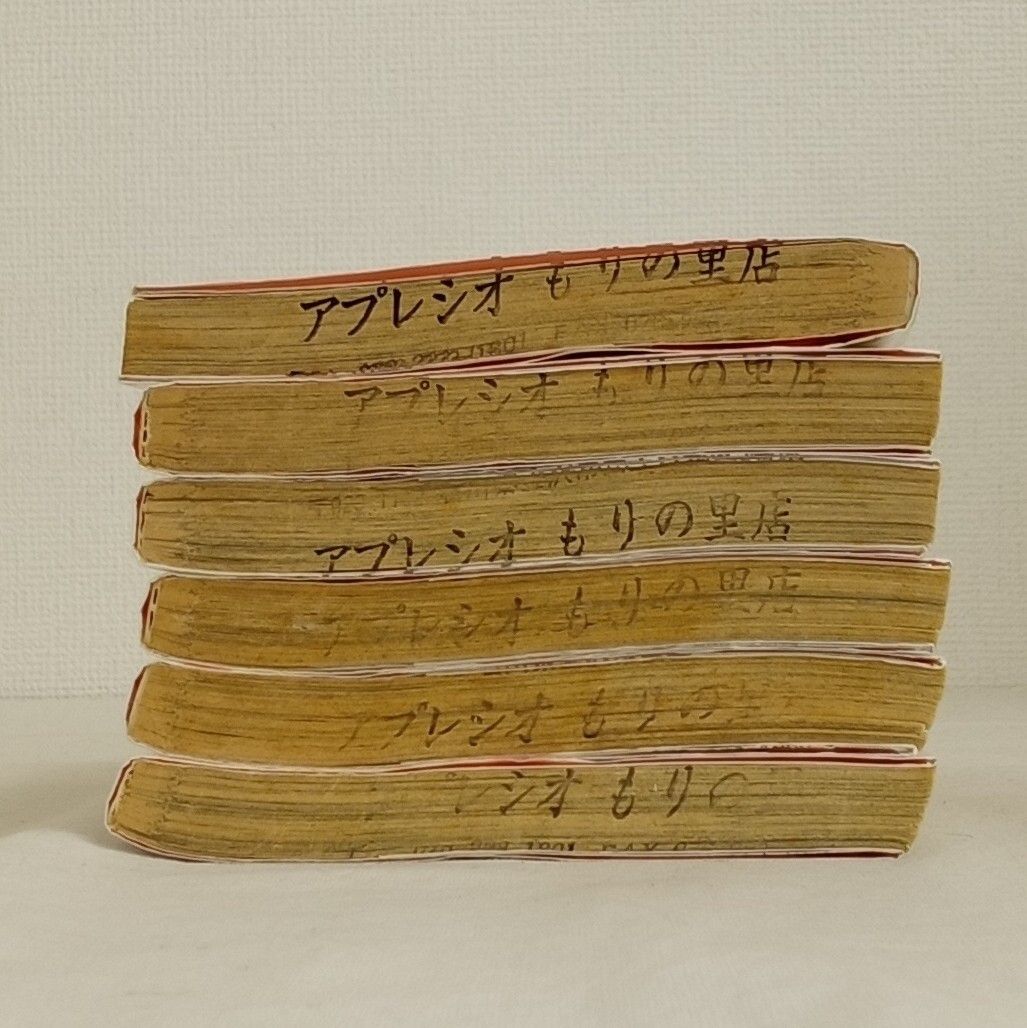 アプレシオ もりの里店
アプレシオ もりの里店
アプレシオ もりの里店
アプレシオ もりの里店
アプレシオ もりの
レシオ もりの